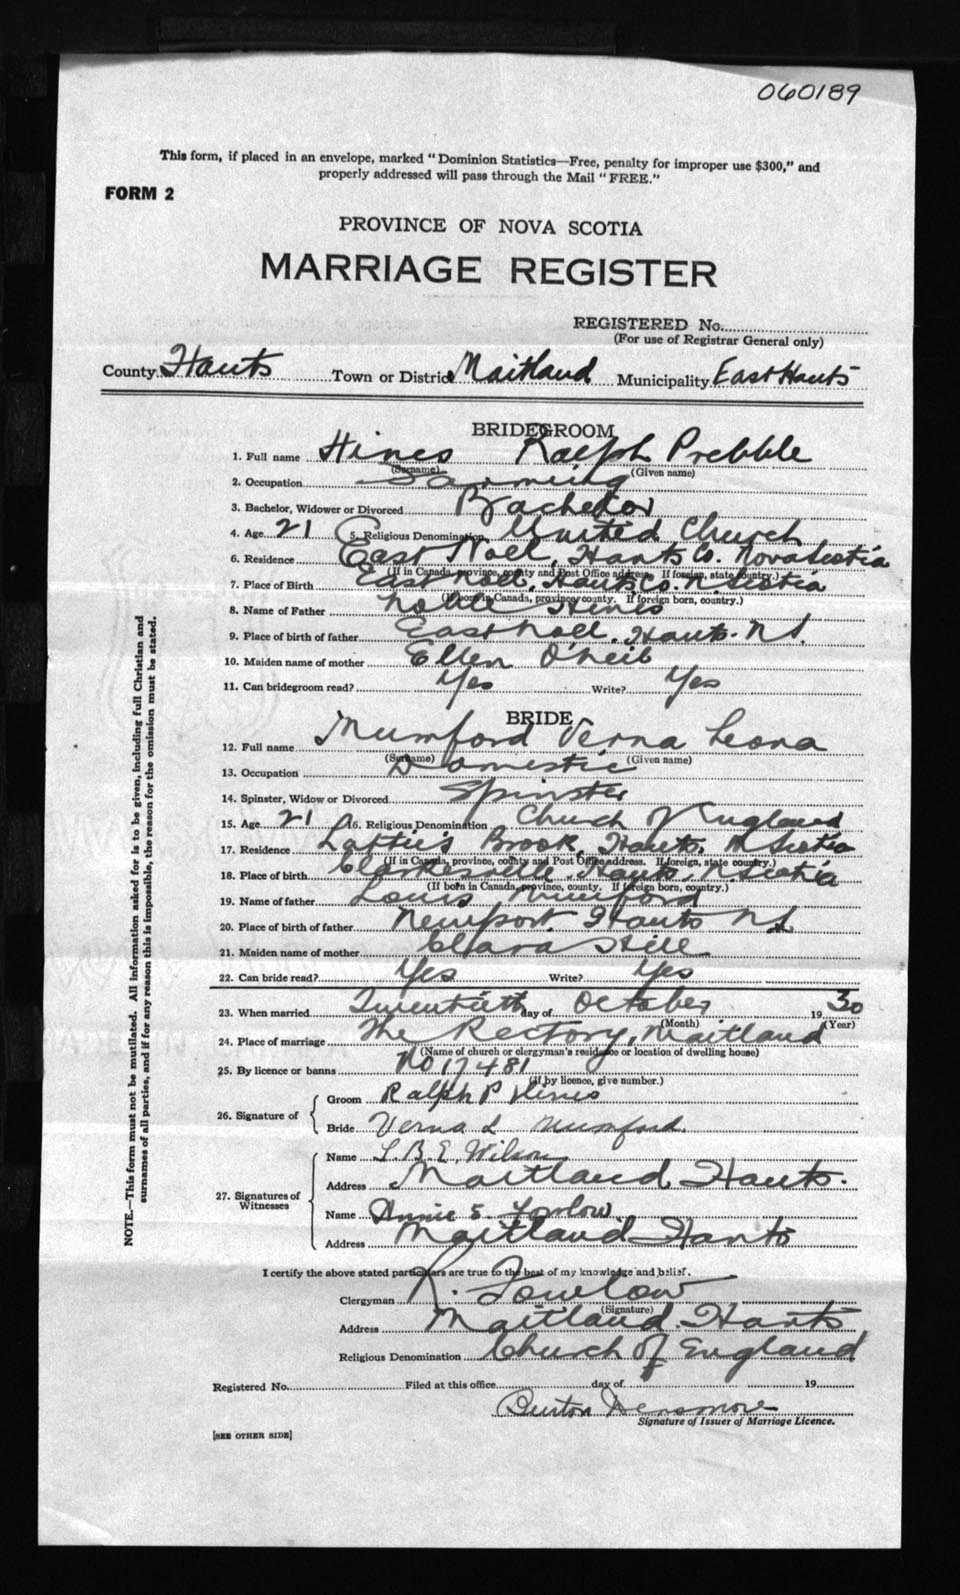 060189
This form, if placed in an envelope, marked "Dominion Statistics—Free, penalty for improper use $300," and
properly addressed will pass through the Mail "FREE."
FORM 2
PROVINCE OF NOVA SCOTIA
MARRIAGE REGISTER
REGISTERED No.
(For use of Registrar General only)
County Hants Town or District Maitland Municipality East Hants
BRIDEGROOM
1. Full name Hines Ralph Prebble
(Surname) (Given name)
2. Occupation Farming
3. Bachelor, Widower or Divorced Bachelor
4. Age 21 5. Religious Denomination United Church
6. Residence East Noel, Hants Co. Nova Scotia
(If in Canada, province, county and Post Office address. If foreign, state country.)
7. Place of Birth East Noel, Hants Co N. Scotia
(If born in Canada, province, county. If foreign born, country.)
8. Name of Father Noble Hines
9. Place of birth of father East Noel, Hants. N S.
10. Maiden name of mother Ellen O'Neil
11. Can bridegroom read? Yes Write? Yes
BRIDE
12. Full name Mumford Verna Leona
(Surname) (Given name)
13. Occupation Domestic
14. Spinster, Widow or Divorced Spinster
15. Age 21 16. Religious Denomination Church of England
17. Residence Brook, Hants, N Scotia
(If in Canada, province, county and Post Office address. If foreign, state country.)
18. Place of birth Clarkesville. Hants. N. Scotia
(If born in Canada, province, county. If foreign born, country.)
19. Name of father Louis Mumford
20. Place of birth of father Newport. Hants N S.
21. Maiden name of mother Clara Hill
22. Can bride read? Yes Write? Yes
23. When married Twentieth day of October 19 30
(Month) (Year)
24. Place of marriage The Rectory, Maitland
(Name of church or clergyman's residence or location of dwelling house)
25. By licence or banns No 17481
(If by licence, give number.)
26. Signature of
Groom Ralph P Hines
Bride Verna L Mumford.
27. Signatures of Witnesses
Name L. B. E. Wilson
Address Maitland Hants.
Name Annie S. Fowlow
Address Maitland Hants
I certify the above stated particulars are true to the best of my knowledge and belief.
Clergyman R. Fowlow
(Signature)
Address Maitland. Hants
Religious Denomination Church of England
Registered No. Filed at this office day of 19
Burton Densmore
Signature of Issuer of Marriage Licence.
[SEE OTHER SIDE]
NOTE.—This form must not be mutilated. All information asked for is to be given, including full Christian and
surnames of all parties, and if for any reason this is impossible, the reason for the omission must be stated.